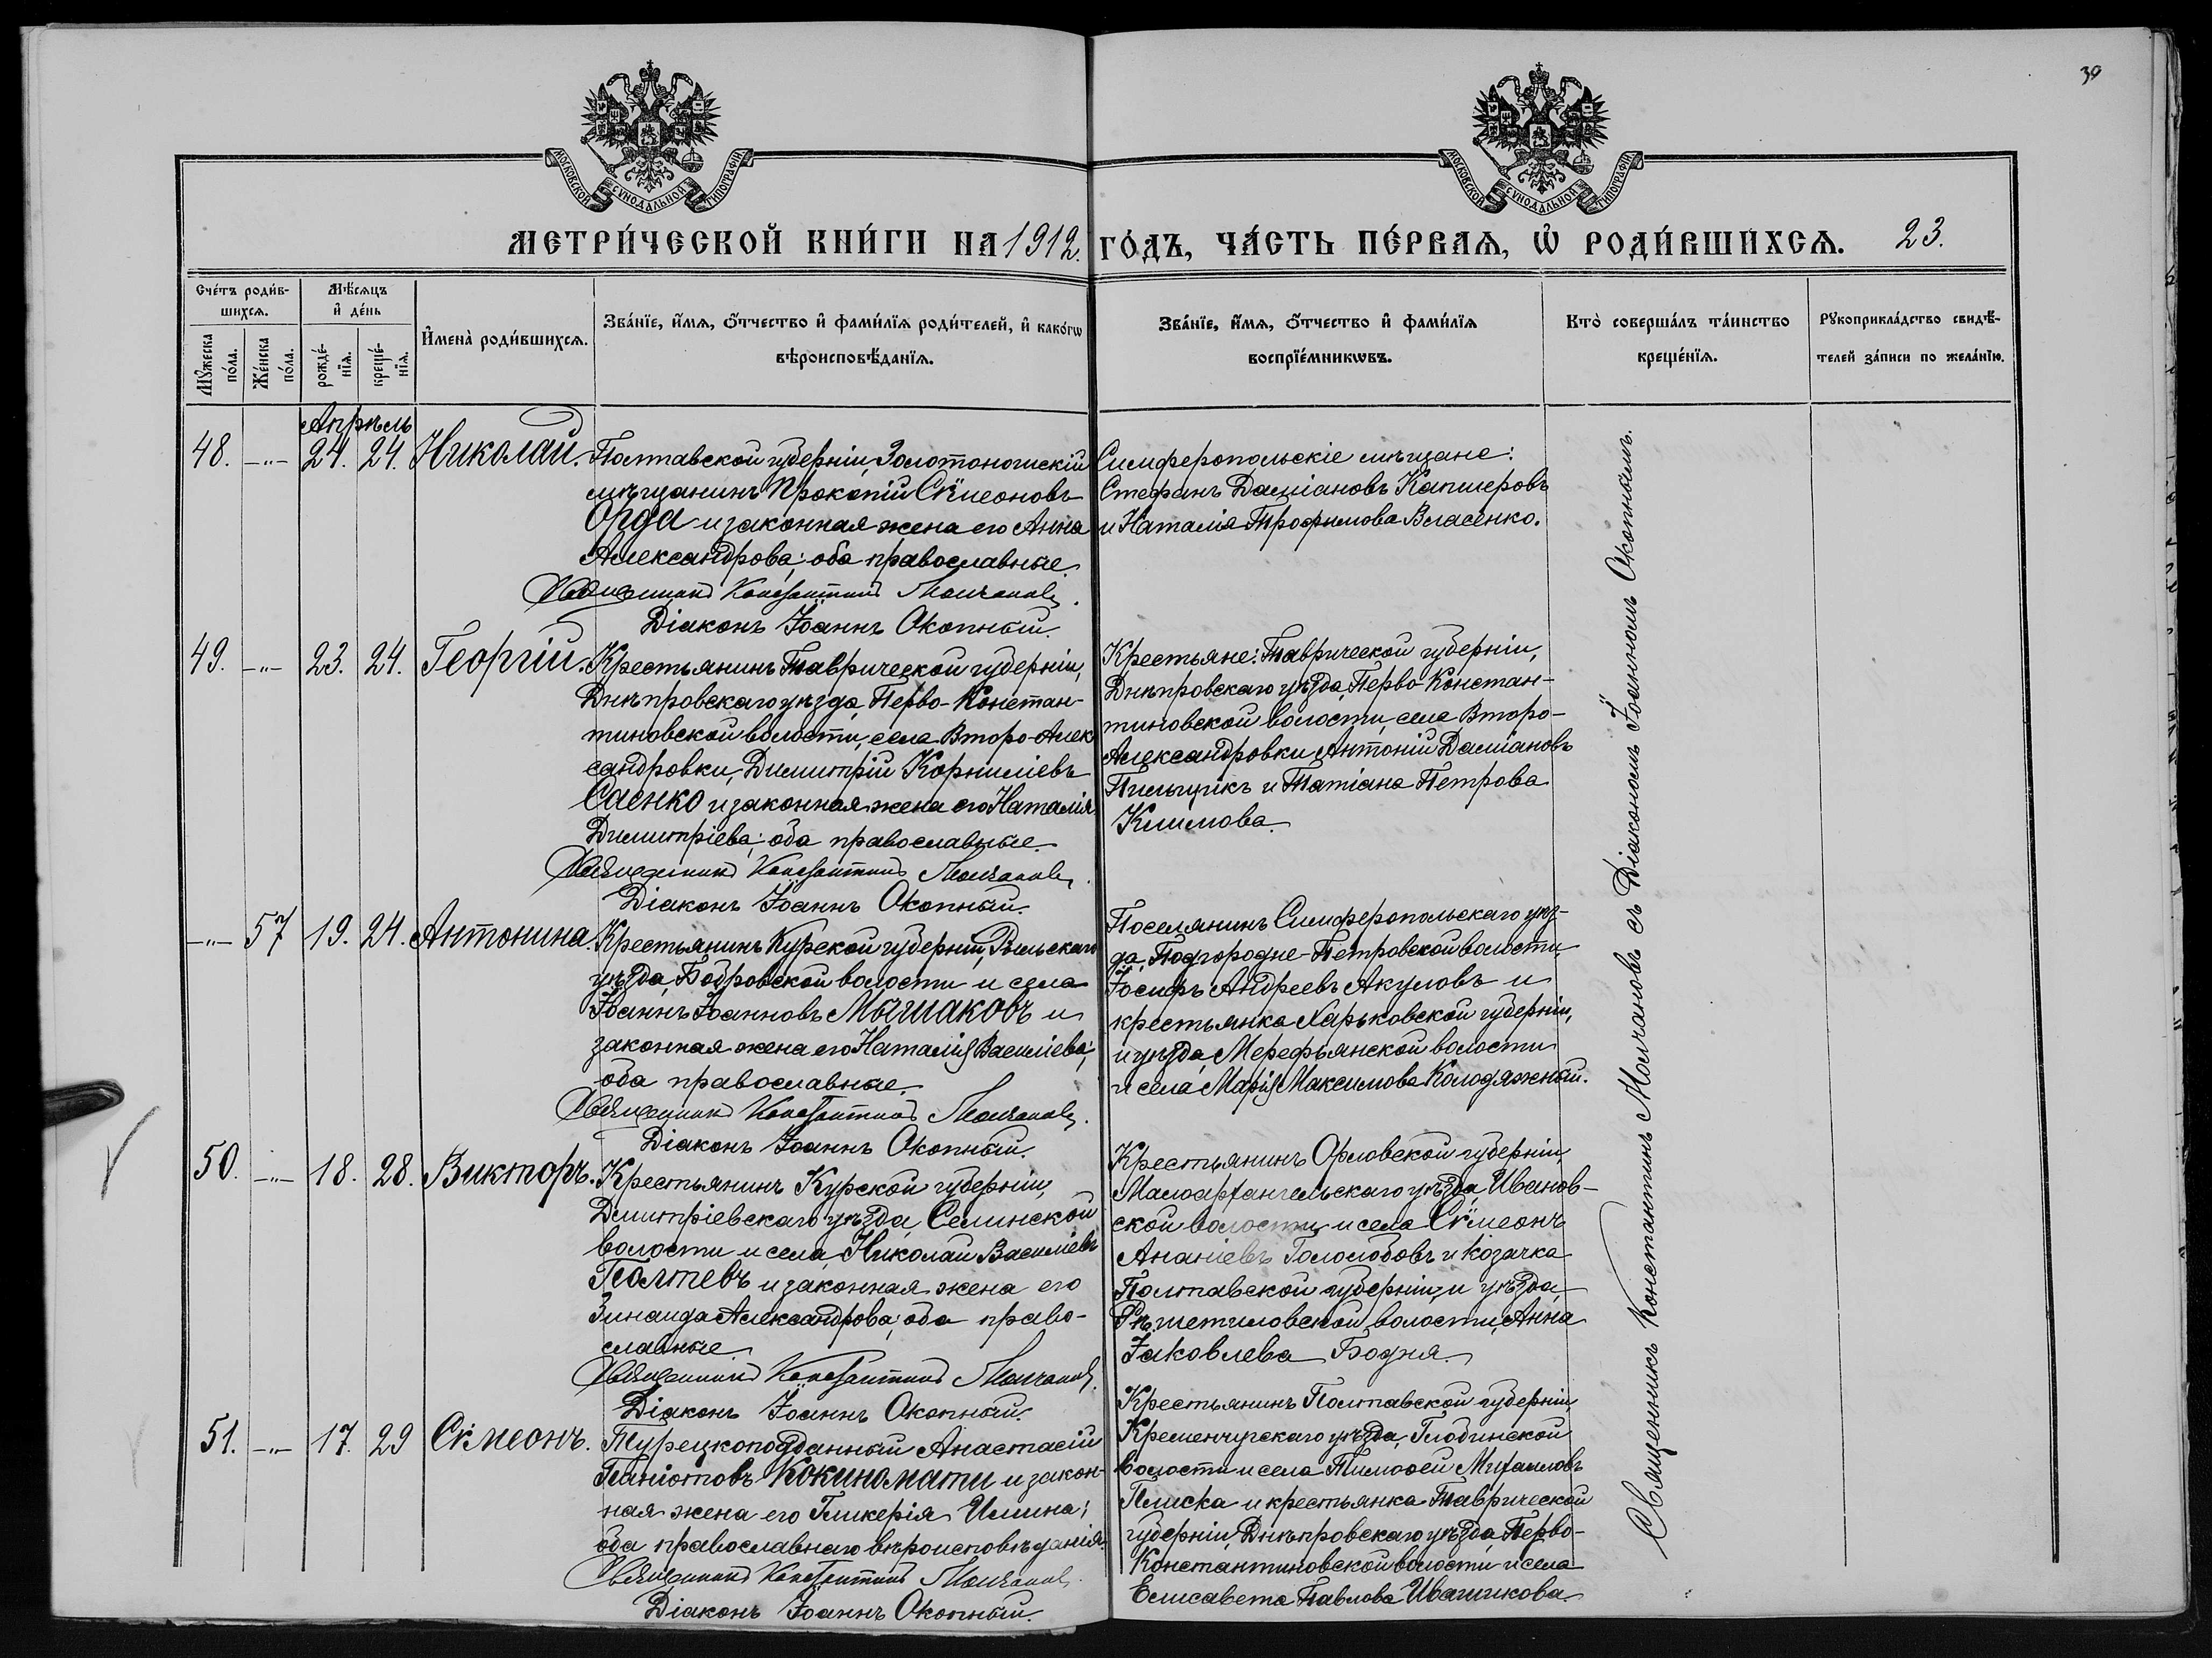 39
МОСКОВСКОЙ СУНОДАЛЬНОЙ ТИПОГРАФІИ
МОСКОВСКОЙ СУНОДАЛЬНОЙ ТИПОГРАФІИ
МЕТРИ́ЧЕСКОЙ КНИ́ГИ НА 1912. ГО́ДЪ, ЧА́СТЬ ПЕ́РВАѦ, Ѽ РОДИ́ВШИХСѦ. 23.
Сче́тъ роди́в-
шихсѧ.
Мꙋ́жеска
по́ла.
Же́нска
по́ла.
Мѣ́сѧцъ
и҆ де́нь
рожде́-
нїѧ.
креще́-
нїѧ.
И҆мена̀ роди́вшихсѧ.
Зва́нїе, и҆́мѧ, ѻ҆́тчество и҆ фами́лїѧ роди́телей, и҆ како́гѡ
вѣроисповѣ́данїѧ.
Зва́нїе, и҆́мѧ, ѻ҆́тчество и҆ фами́лїѧ
воспрїе́мникѡвъ.
Кто̀ соверша́лъ та́инство
креще́нїѧ.
Рꙋкоприкла́дство свидѣ́-
телей за́писи по жела́нїю.
Апрѣль
48. -"- 24. 24. Николай.
Полтавской губерніи, Золотоношскій
мѣщанинъ Прокопій Сѵмеоновъ
Орда и законная жена его Анна
Александрова; оба православные.
Священникъ Константинъ Молчановъ.
Діаконъ Іоаннъ Окопный.
Симферопольскіе мѣщане:
Стефанъ Даміановъ Капшеровъ
и Наталія Трофимова Власенко.
49. -"- 23. 24. Георгій.
Крестьянинъ Таврической губерніи,
Днѣпровскаго уѣзда, Перво-Констан-
тиновской волости, села Второ-Алек
сандровки, Димитрій Корниліевъ
Саенко и законная жена его Наталія
Димитріева; оба православные.
Священникъ Константинъ Молчановъ.
Діаконъ Іоаннъ Окопный.
Крестьяне: Таврической губерніи,
Днѣпровскаго уѣзда, Перво-Констан-
тиновской волости, села Второ-
Александровки Антоній Даміановъ
Пильщикъ и Татіана Петрова
Климова.
-"- 57 19. 24. Антонина.
Крестьянинъ Курской губерніи, Рыльскаго
уѣзда, Бобровской волости и села
Іоаннъ Іоанновъ Мышаковъ и
законная жена его Наталія Василіева;
оба православные.
Священникъ Константинъ Молчановъ.
Діаконъ Іоаннъ Окопный.
Поселянинъ Симферопольскаго уѣз-
да, Подгородне-Петровской волости,
Іосифъ Андреевъ Акуловъ и
крестьянка Харьковской губерніи,
и уѣзда, Мерефьянской волости
и села Марія Максимова Колодяжный.
50. -"- 18. 28. Викторъ.
Крестьянинъ Курской губерніи,
Дмитріевскаго уѣзда, Селинской
волости и села, Николай Василіевъ
Полтевъ и законная жена его
Зинаида Александрова; оба право-
славные.
Священникъ Константинъ Молчановъ.
Діаконъ Іоаннъ Окопный.
Крестьянинъ Орловской губерніи,
Малоархангельскаго уѣзда, Иванов-
ской волости и села Сѵмеонъ
Ананіевъ Гололобовъ и козачка
Полтавской губерніи и уѣзда,
Рѣшетиловской волости, Анна
Іаковлева Бодня.
51. -"- 17. 29 Сѵмеонъ.
Турецкоподданный Анастасій
Паніотовъ Кокиномати и закон-
ная жена его Гликерія Илина;
оба православнаго вѣроисповѣданія.
Священникъ Константинъ Молчановъ.
Діаконъ Іоаннъ Окопный.
Крестьянинъ Полтавской губерніи,
Кременчугскаго уѣзда, Глобинской
волости и села Тимоѳей Михаиловъ
Плиска и крестьянка Таврической
губерніи, Днѣпровскаго уѣзда, Перво-
Константиновской волости и села
Елисавета Павлова Ивашикова.
Священникъ Константинъ Молчановъ съ Діакономъ Іоанномъ Окопнымъ.